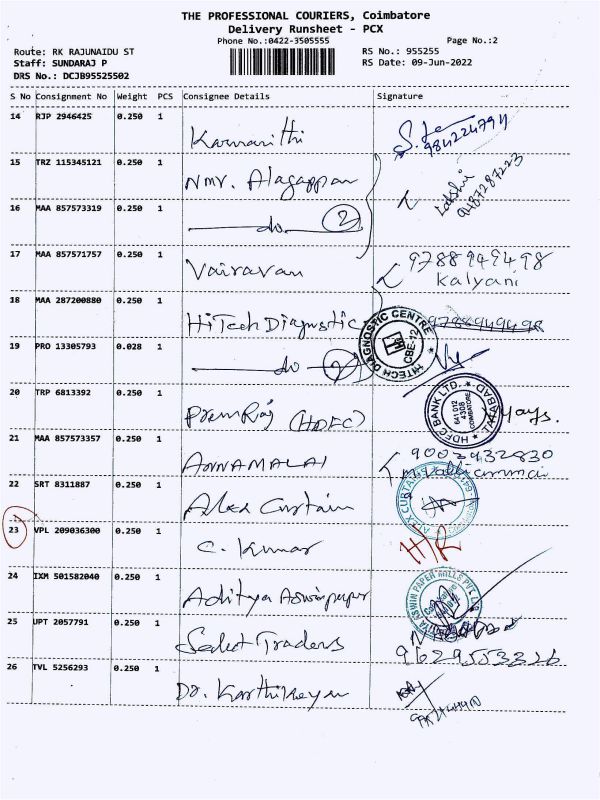 THE PROFESSIONAL COURIERS, Coimbatore
Delivery Runsheet - PCX
Phone No.:0422-3505555
Page No.:2
Route: RK RAJUNAIDU ST
RS No.: 955255
Staff: SUNDARAJ P
RS Date: 09-Jun-2022
DRS No.: DCJB95525502
S No Consignment No Weight PCS Consignee Details Signature
14 RJP 2946425 0.250 1
15 TRZ 115345121 0.250 1 Nmr. Alagappan
9487287223
16 MAA 857573319 0.250 1 do 2
17 MAA 857571757 0.250 1 Vairavan 9788949498
Kalyani
18 MAA 287200880 0.250 1 HiTech Diagnostic 9788949498
HITECH DIAGNOSTIC CENTRE
CBE-12
19 PRO 13305793 0.028 1 do 2
20 TRP 6813392 0.250 1 PremRaj (HDFC)
HDFC BANK LTD. TATABAD
641 012
COIMBATORE
21 MAA 857573357 0.250 1 ANNAMALAI 9003932830
22 SRT 8311887 0.250 1 Alex Curtain
ALEX CURTAIN
23 VPL 209036300 0.250 1 C. Kumar H/R
24 IXM 501582040 0.250 1 Aditya Aswinpaper
ASWIN PAPER MILLS PVT LTD
25 UPT 2057791 0.250 1 Select Traders
9629553326
26 TVL 5256293 0.250 1 Dr. Karthikeyan